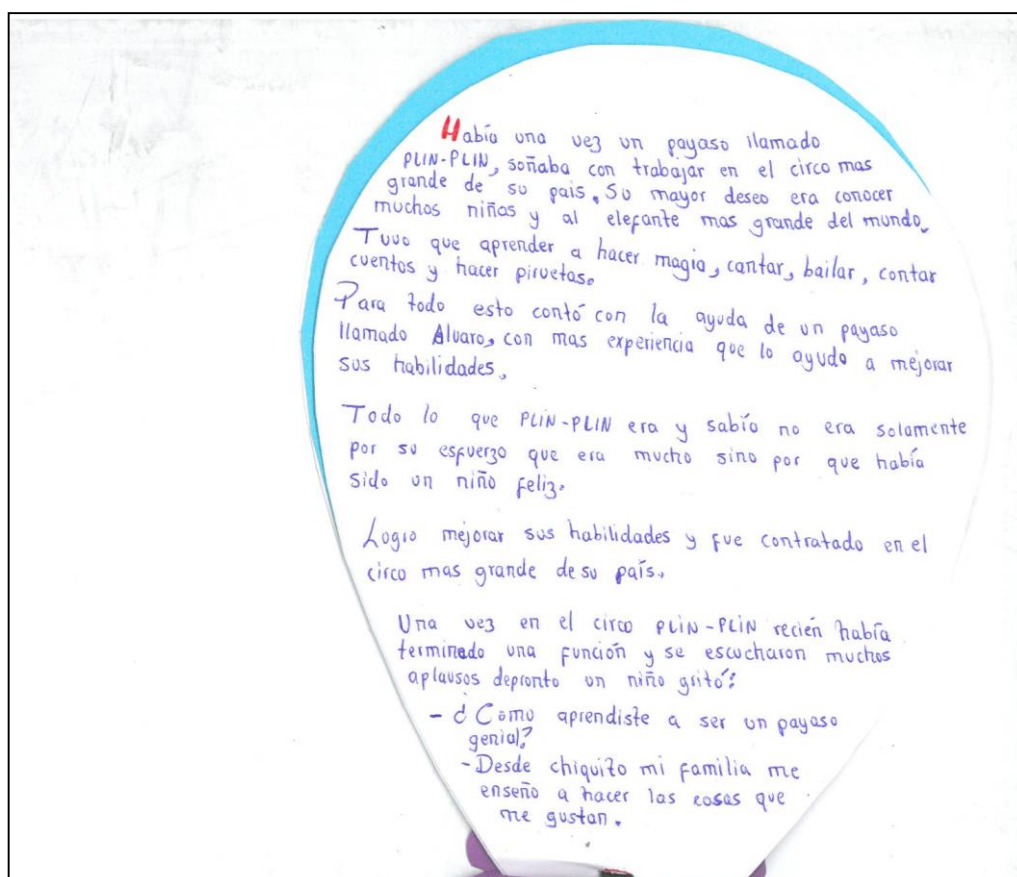 Había una vez un payaso llamado
PLIN-PLIN, soñaba con trabajar en el circo mas
grande de su pais. Su mayor deseo era conocer
muchos niños y al elefante mas grande del mundo.
Tuvo que aprender a hacer magia, cantar, bailar, contar
cuentos y hacer piruetas.
Para todo esto contó con la ayuda de un payaso
llamado Alvaro, con mas experiencia que lo ayudo a mejorar
sus habilidades.
Todo lo que PLIN-PLIN era y sabío no era solamente
por su esfuerzo que era mucho sino por que había
sido un niño feliz.
Logro mejorar sus habilidades y fue contratado en el
circo mas grande de su país.
Una vez en el circo PLIN-PLIN recién había
terminado una función y se escucharon muchos
aplausos depronto un niño gritó:
- ¿Como aprendiste a ser un payaso
genial?
- Desde chiquito mi familia me
enseño a hacer las cosas que
me gustan.